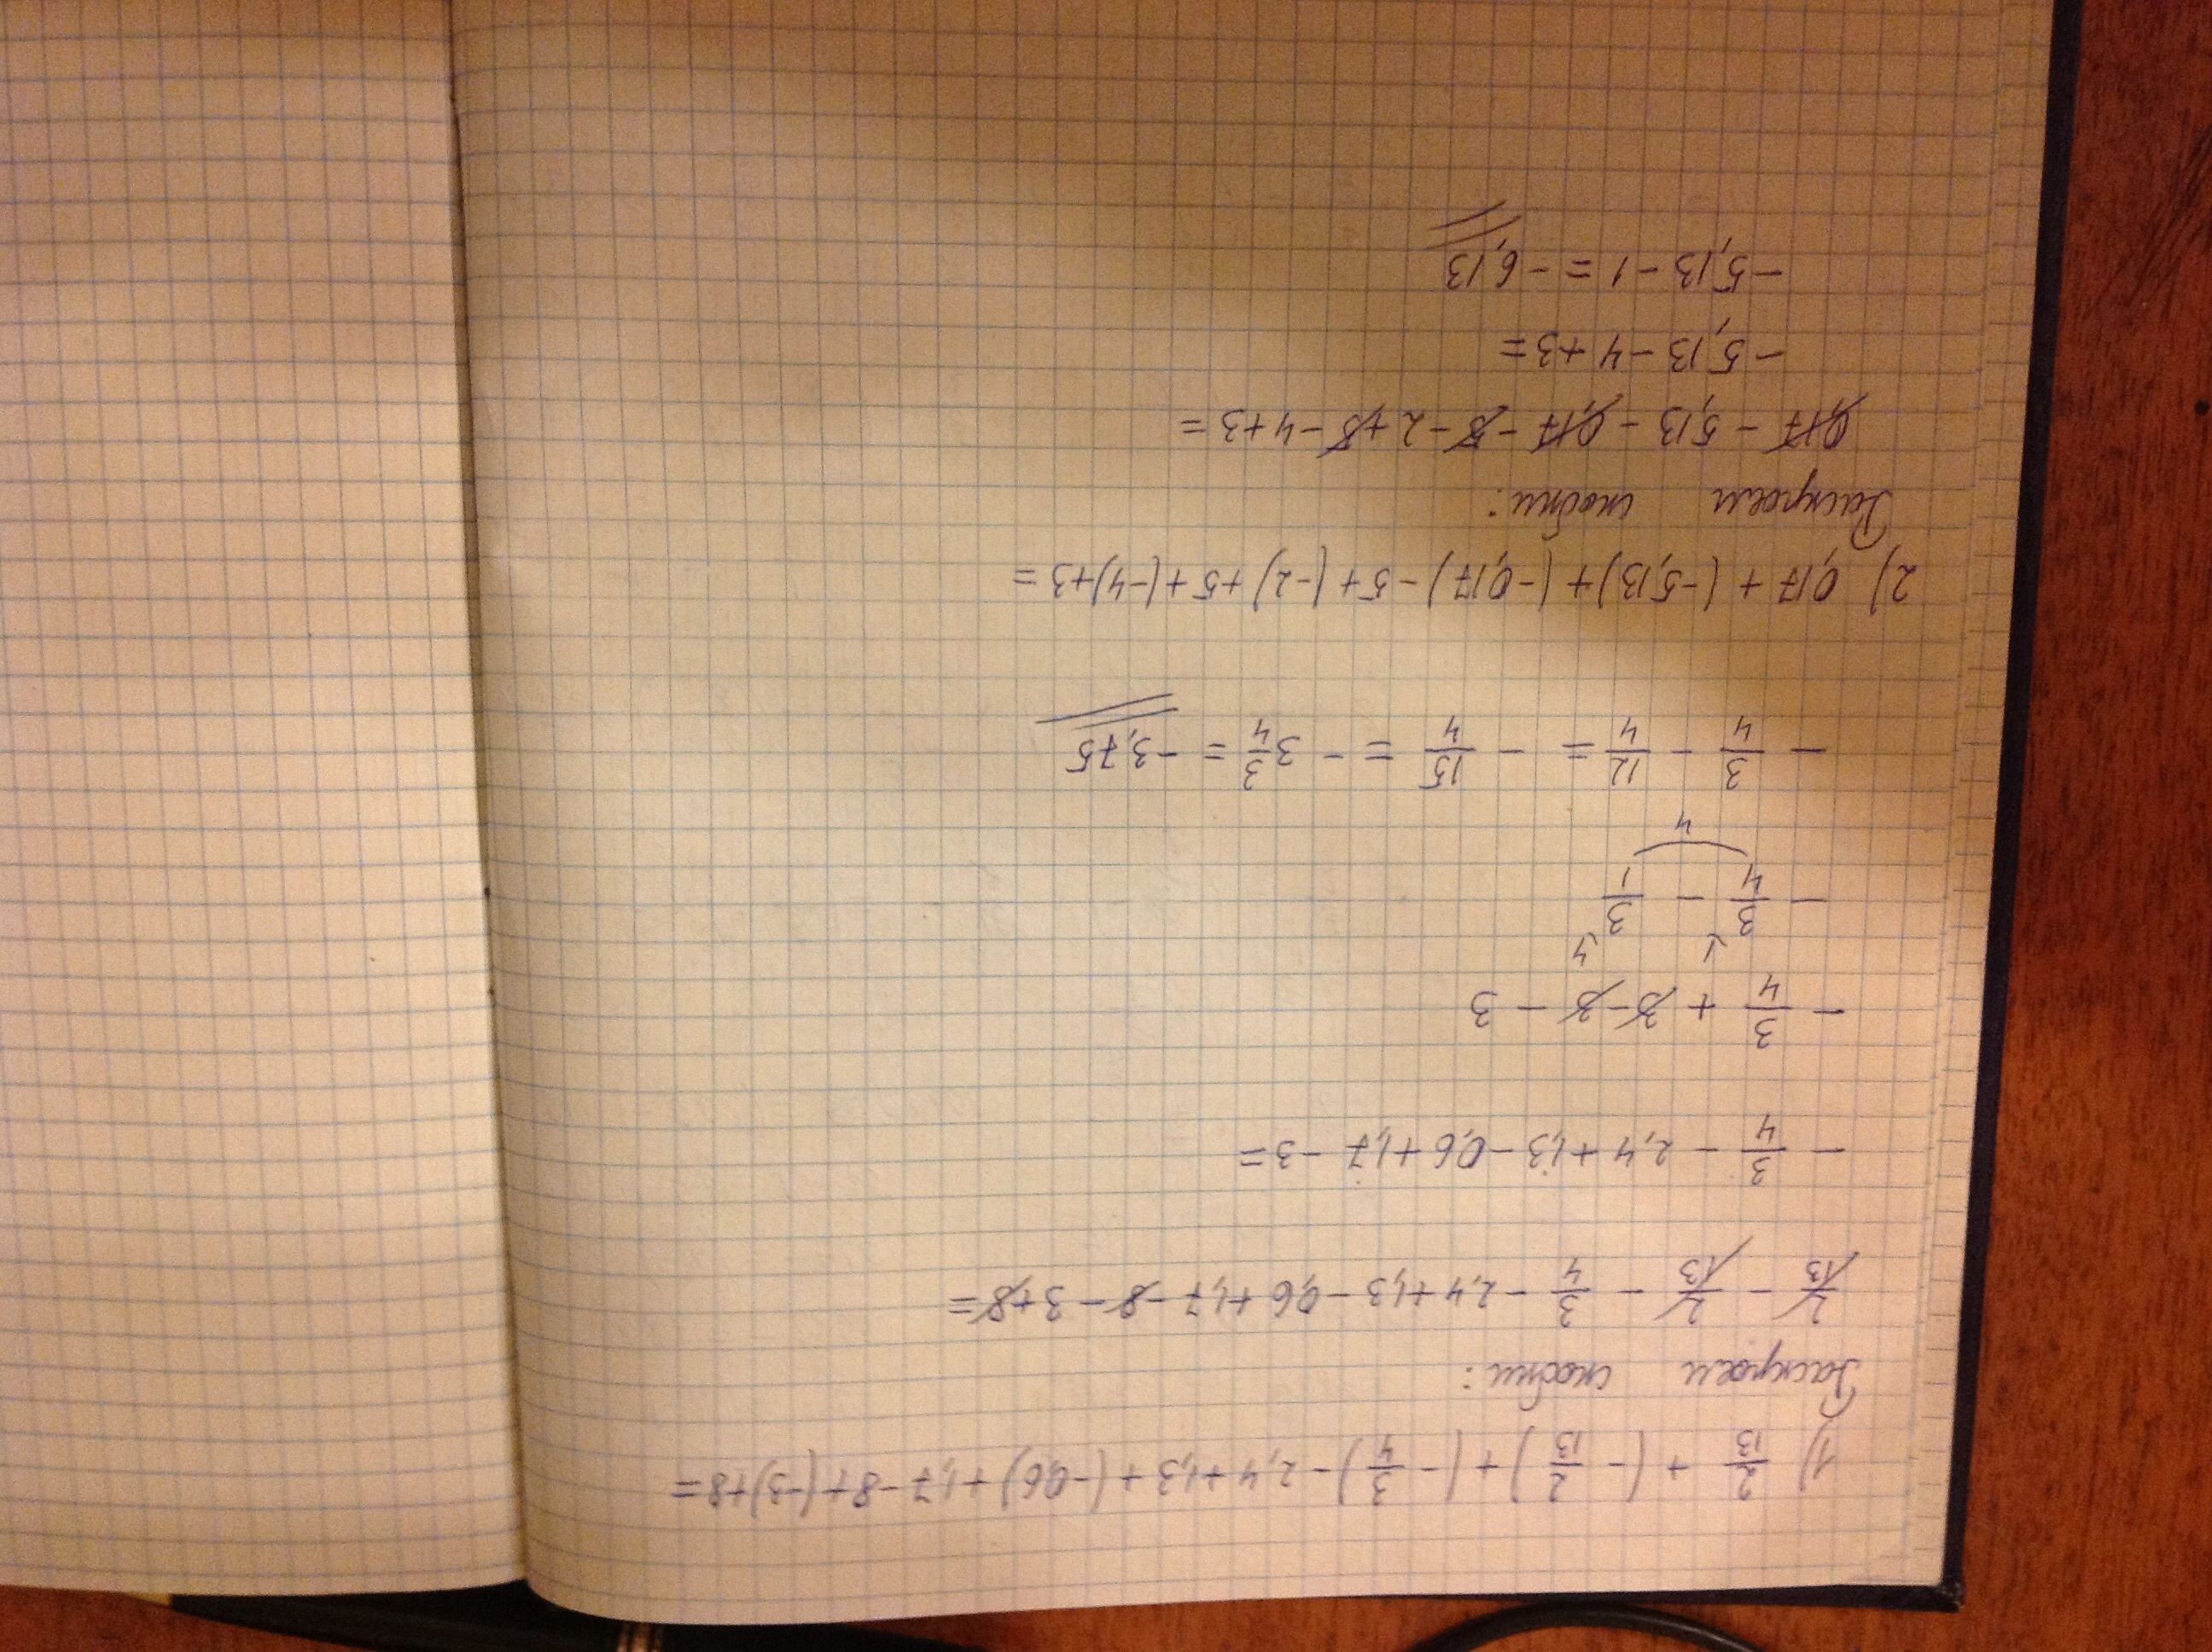 1) 2/13 + (- 2/13) + (- 3/4) - 2,4 + 1,3 + (-0,6) + 1,7 - 8 + (-3) + 8 =
Раскроем скобки:
2/13 - 2/13 - 3/4 - 2,4 + 1,3 - 0,6 + 1,7 - 8 - 3 + 8 =
- 3/4 - 2,4 + 1,3 - 0,6 + 1,7 - 3 =
- 3/4 + 3 - 3 - 3
1 4
- 3/4 - 3/1
4
- 3/4 - 12/4 = - 15/4 = - 3 3/4 = -3,75
2) 0,17 + (-5,13) + (-0,17) - 5 + (-2) + 5 + (-4) + 3 =
Раскроем скобки:
0,17 - 5,13 - 0,17 - 5 - 2 + 5 - 4 + 3 =
- 5,13 - 4 + 3 =
- 5,13 - 1 = - 6,13